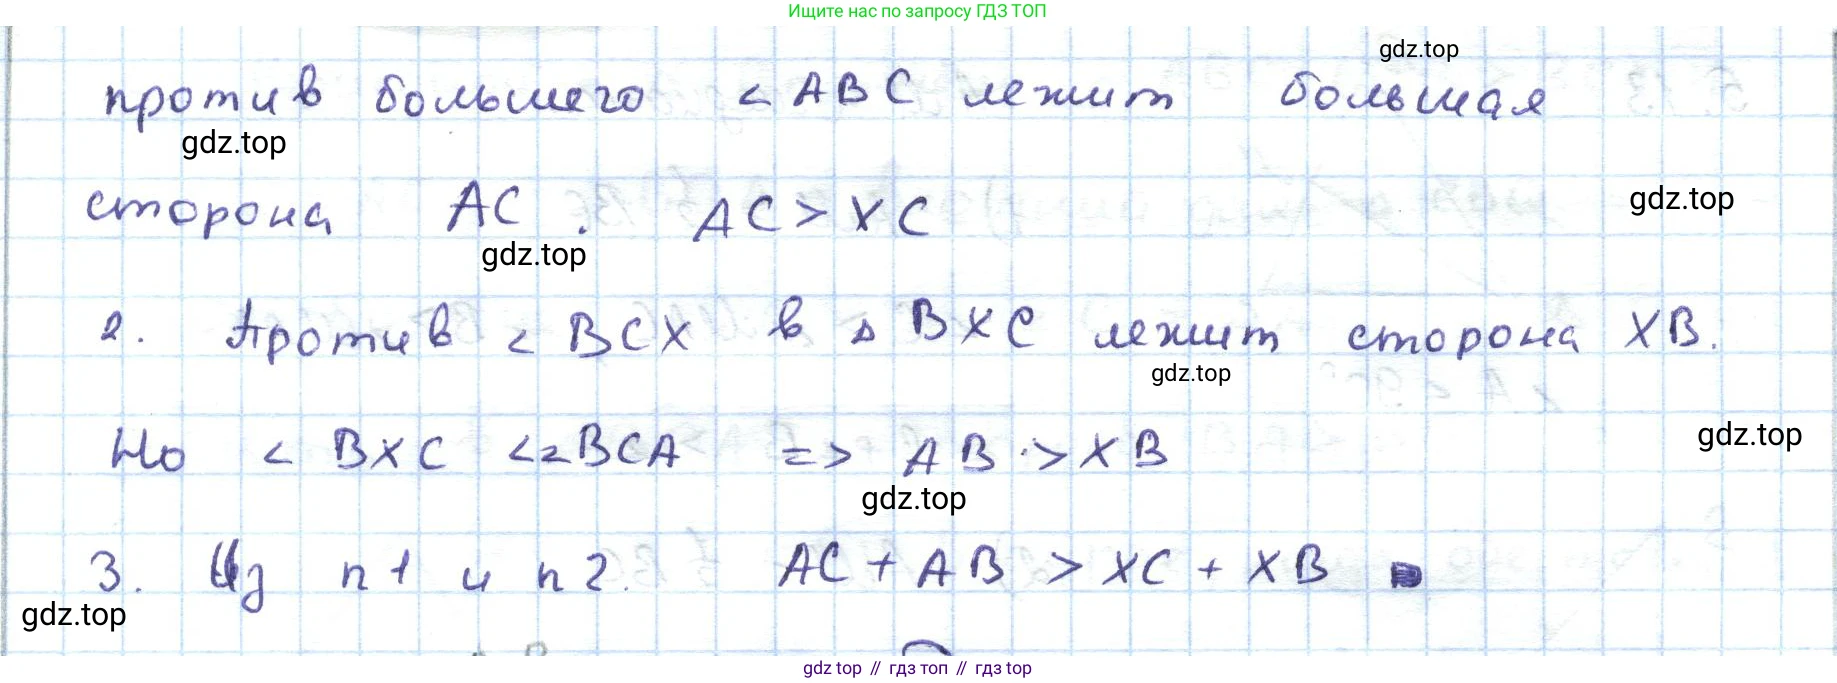 Ищите нас по запросу ГДЗ ТОП
gdz.top
против большего < ABC лежит большая
gdz.top
сторона AC. AC > XC
gdz.top
gdz.top
2. Против < BCX в △ BXC лежит сторона XB.
gdz.top
Но < BXC <∠BCA => AB > XB
gdz.top
gdz.top
3. Из п1 и п2. AC + AB > XC + XB
gdz.top
gdz top // гдз топ // gdz top